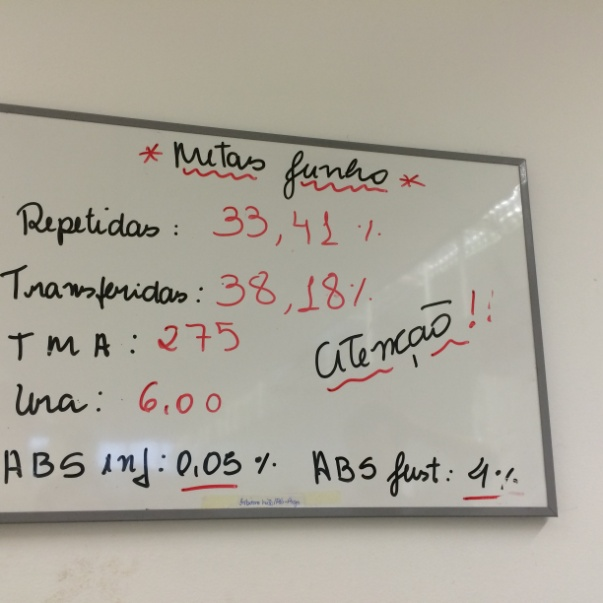 * Metas Junho *
Repetidas: 33,41 %
Transferidas: 38,18%
TMA: 275
Atenção!!
Ura: 6.00
ABS inj: 0,05 % ABS Just: 4%